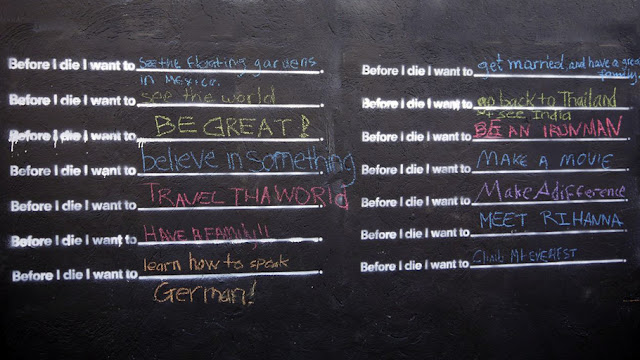 Before I die I want to see the floating gardens
in Mexico.
Before I die I want to see the world
Before I die I want to BE GREAT!
Before I die I want to believe in something
Before I die I want to TRAVEL THA WORLd
Before I die I want to HAVE A FAMILY!!
Before I die I want to learn how to speak
German!
Before I die I want to get married, and have a great
family.
Before I die I want to go back to Thailand
+ see India
Before I die I want to BE AN IRONMAN
Before I die I want to MAKE A MOVIE
Before I die I want to Make A difference
Before I die I want to MEET RIHANNA
Before I die I want to Climb Mt EVEREST